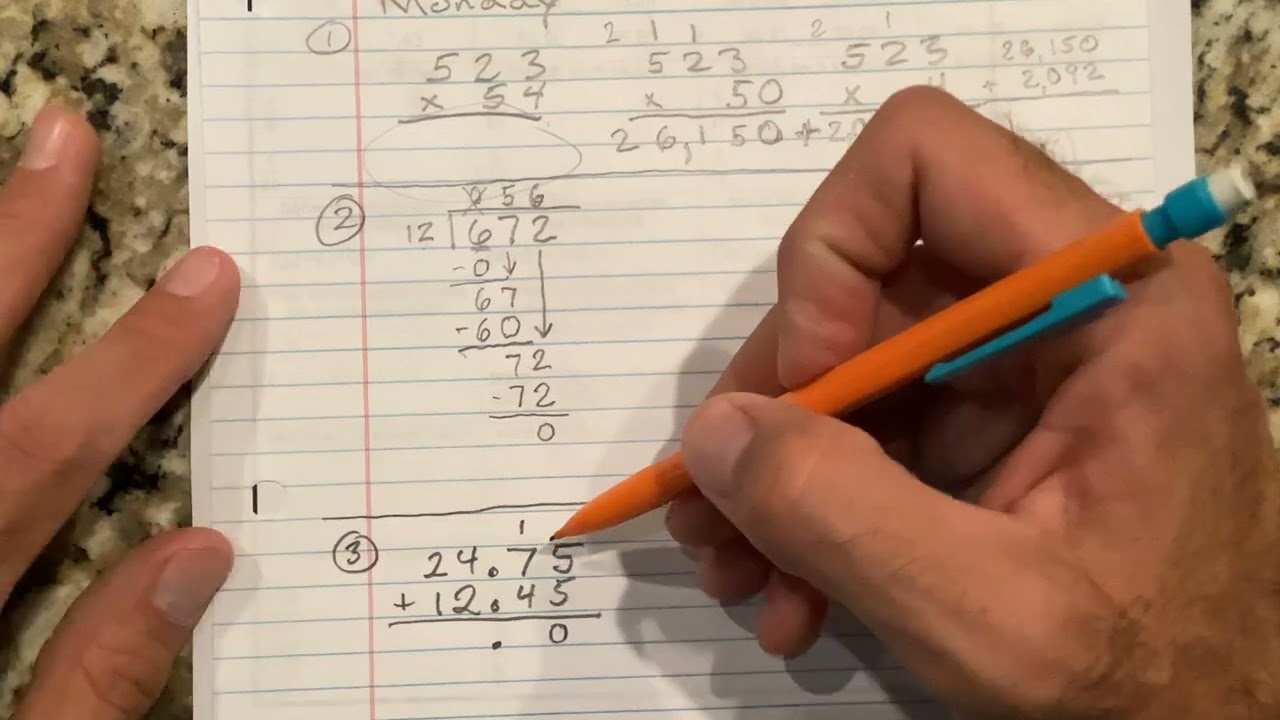 Monday
1 523 x 54
2 1 1
523 x 50
26,150 +
2 1
523 x 4
26,150 + 2,092
2 056
12 672
-0
67
-60
72
-72
0
3 1
24.75
+ 12.45
. 0